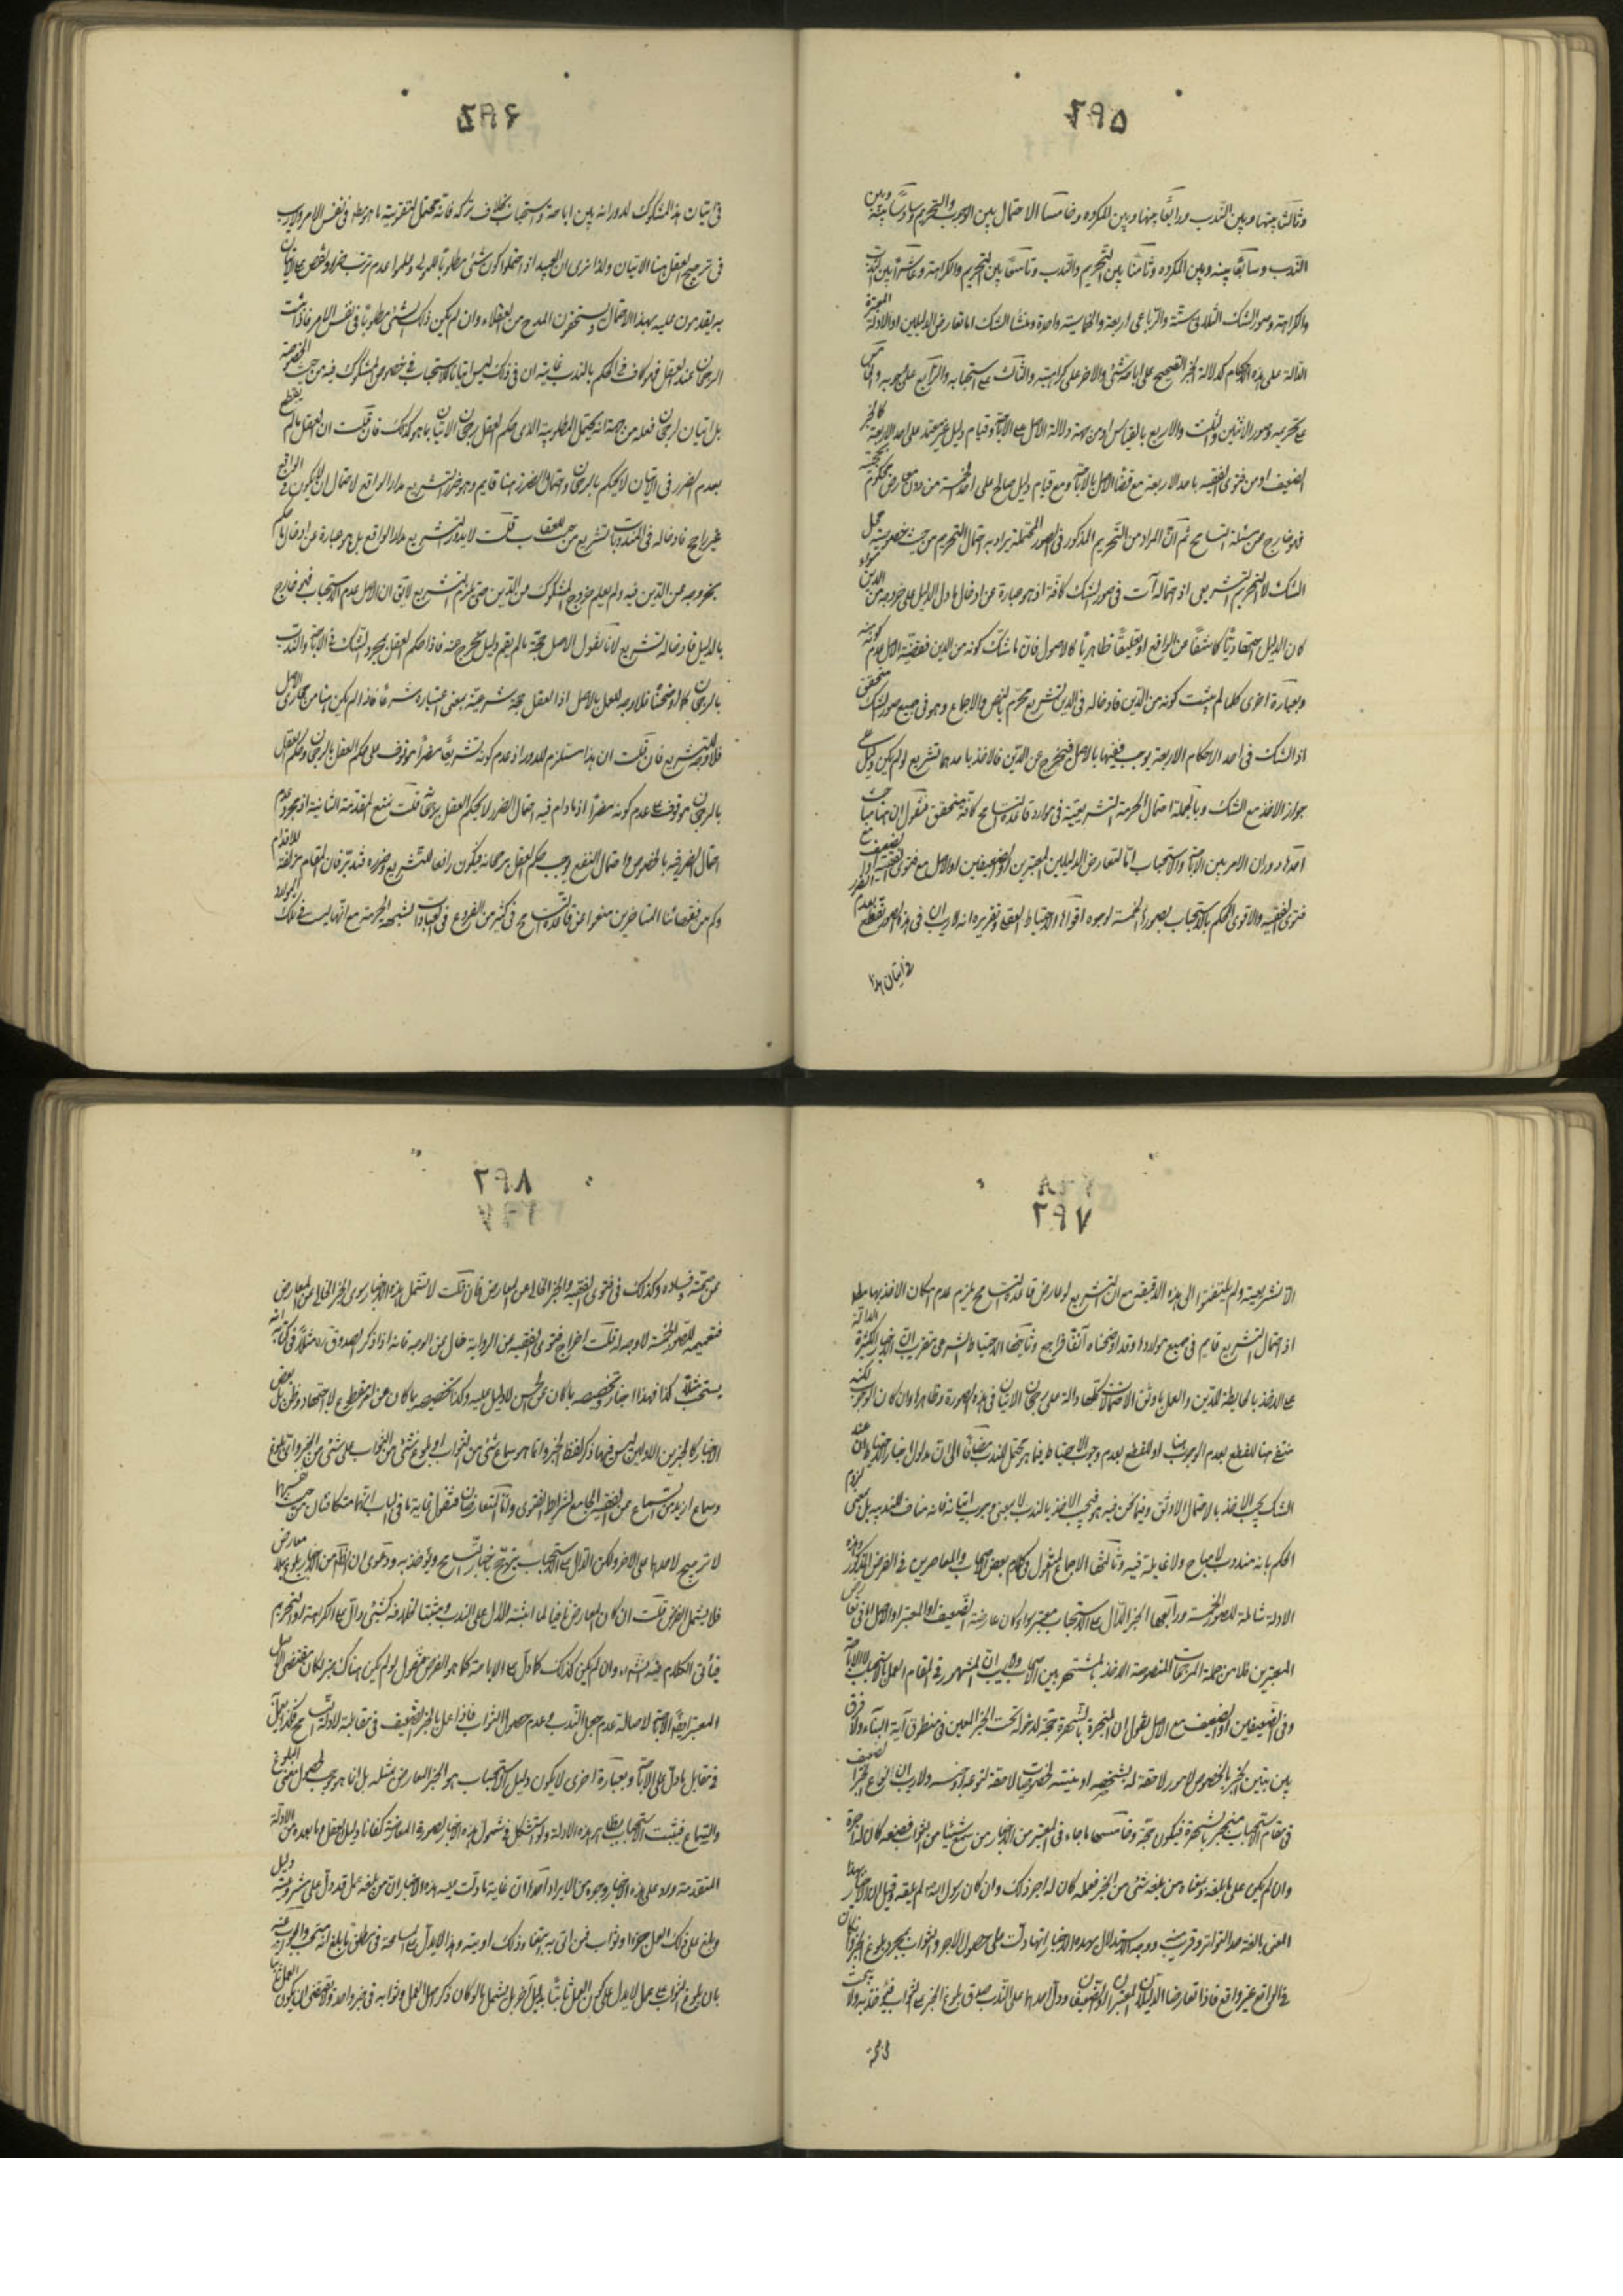 ۲۹۵
وثالثا بينها وبين الندب ورابعا بينها وبين المكروه وخامسا الاحتمال بين الوجوب والتحريم وسادسا بينه وبين
الندب وسابعا بينه وبين المكروه وثامنا بين التحريم والندب وتاسعا بين التحريم والكراهة وعاشرا بين الندب
والكراهة وصور الشك الثلاثى ستة والرباعى اربعة والخماسية واحدة ومنشأ الشك اما تعارض الدليلين او الادلة المعتبرة
الدالة على هذه الاحكام كدلالة الخبر الصحيح على اباحة شئ والاخر على كراهته والثالث على استحبابه والرابع على وجوبه والخامس
على تحريمه وصور الاثنين والثلث والاربع بالقياس او من جهة دلالة الاصل على الاباحة وقيام دليل غير معتبر على احد الاربعة كالخبر
الضعيف او من فتوى الفقيه باحد الاربعة مع قضاء الاصل بالاباحة ومع قيام دليل صالح على احد الخمسة من دون معارض محكوم بحجيته
فهو خارج عن مسئلة التسامح ثم ان المراد من التحريم المذكور فى الصور المحتملة يراد به احتمال التحريم من حيث خصوصية محل
الشك لا التحريم التشريعى اذ احتماله آت فى صور الشك كافة اذ هو عبارة عن ادخال ما دل الدليل على خروجه من الدين سواء
كان الدليل اجتهاديا كاشفا عن الواقع او تعليقيا ظاهريا كالاصول فان ما شك كونه من الدين فقضية الاصل عدم كونه منه
وبعبارة اخرى كلما لم يثبت كونه من الدين فادخاله فى الدين تشريع محرم بالنص والاجماع وهو فى جميع صور الشك متحقق
اذ الشك فى احد الاحكام الاربعة يوجب نفيها بالاصل فيخرج عن الدين فالاخذ باحدها تشريع لو لم يكن دليل على
جواز الاخذ مع الشك وبالجملة احتمال الحرمة التشريعية فى موارد قاعدة التسامح كافة متحقق فنقول ان هنا مباحث
احدها دوران الامر بين الاباحة والاستحباب اما لتعارض الدليلين المعتبرين او الضعيفين او الاصل مع فتوى الفقيه او الضعيف مع
فتوى الفقيه والاقوى الحكم بالاستحباب بصورها الخمسة لوجوه اقواها الاحتياط العقلى وتقريره انه لا ريب ان فى هذه الصور نقطع بعدم الضرر
فى اتيان هذا
۲۹۶
فى اتيان هذا المشكوك لدورانه بين اباحة واستحباب بخلاف تركه فانه محتمل لتفويته ما هو مط فى نفس الامر ولا ريب
فى ترجيح العقل هنا الاتيان ولذا نرى ان العبيد اذا احتملوا كون شئ مطلوبا للمولى وعلموا عدم ترتب ضرر ونقص على الاتيان
به يقدمون عليه بهذا الاحتمال ويستحقون المدح من العقلاء وان لم يكن ذلك الشئ مطلوبا فى نفس الامر فاذا ثبت
الرجحان عند العقل فهو كاف فى الحكم بالندب غايته ان فى ذلك ليس اتيانا للاستحباب فى خصوص المشكوك فيه من حيث الخصوصية
بل اتيان لرجحان فعله من جهة انه محتمل المطلوبية الذى حكم العقل برجحان الاتيان بما هو كذلك فان قلت ان العقل ما لم يقطع
بعدم الضرر فى الاتيان لا يحكم بالرجحان واحتمال الضرر هنا قايم وهو ضرر التشريع مدار الواقع لاحتمال ان يكون فى الواقع
غير راجح فادخاله فى المندوبات تشريع موجب للعقاب قلت لا يدور التشريع مدار الواقع بل هو عبارة عن ادخال ما حكم
بخروجه عن الدين فيه ولم يعلم خروج المشكوك من الدين حتى يلزم التشريع لا يق ان الاصل عدم الاستحباب فهو خارج
بالدليل فادخاله تشريع لانا نقول الاصل حجة ما لم يقم دليل مخرج عنه فاذا حكم العقل بمجرد الشك فى الاباحة والندب
بالرجحان كما اوضحنا فلا وجه للعمل بالاصل اذ العقل حجة شرعية بمعنى اعتباره شرعا فاذا لم يكن هنا من مجارى الاصل
فلا وجه للتشريع فان قلت ان هذا مستلزم للدور اذ عدم كونه تشريعا مضرا موقوف على حكم العقل بالرجحان وحكم العقل
بالرجحان موقوف على عدم كونه مضرا اذ ما دام فيه احتمال الضرر لا يحكم العقل برجحانه قلت نمنع المقدمة الثانية اذ مجرد عدم
احتمال الضرر فيه بالخصوص واحتمال النفع يوجب حكم العقل برجحانه فيكون رافعا للتشريع وضرره فتدبر فان المقام مزلقة للاقدام
وكم من فقهائنا المتاخرين منعوا عن قاعدة التسامح فى كثير من الفروع فى العبادات لشبهة الحرمة مع انها ليست فى تلك الموارد
۲۹۷
الا تشريعية ولم يلتفتوا الى هذه الدقيقة مع ان التشريع لو عارض قاعدة التسامح يلزم عدم امكان الاخذ بها مطلقا
اذ احتمال التشريع قايم فى جميع مواردها وقد اوضحناه آنفا فراجع وثانيها الاحتياط الشرعى بتقريب ان الاخبار الكثيرة الدالة
على الاخذ بالحايطة للدين والعمل باوثق الاحتمالات كلها دالة على رجحان الاتيان فى هذه الصورة وظاهرها وان كان الوجوب لكنه
منتف هنا للقطع بعدم الوجوب هنا او للقطع بعدم وجوب الاحتياط فيما هو يحتمل الندب مضافا الى ان مدلول اخبار الاحتياط ان عند
الشك يجب الاخذ بالاحتمال الاوثق وفيما نحن فيه هو فيجب الاخذ بالندب لا بمعنى وجوب اتيانه فانه مناف للندبية بل بمعنى لزوم
الحكم بانه مندوب لا مباح ولا غايلة فيه وثالثها الاجماع المنقول فى كلام بعض الاصحاب والمعاصرين فى الفرض المذكور وهذه
الادلة شاملة للصور الخمسة ورابعها الخبر الدال على الاستحباب معتبر سواء كان عارضه الضعيف او المعتبر او الاصل اما فى تعارض
المعتبرين فلان من جملة المرجحات المنصوصة الاخذ بالمشتهر بين الاصحاب ولا ريب ان المشهور فى المقام العمل بالاستحباب لا الاباحة
وفى الضعيفين او الضعيف مع الاصل نقول ان المنجبرة بالشهرة حجة لدخوله تحت الخبر المعين فى منطوق آية النبأ ولا فرق
بين تبين الخبر بالخصوص لامور لاحقة له بشخصه او بتبينه لخصوصيات لاحقة لنوعه او جنسه ولا ريب ان انواع الخبر الضعيف
فى مقام الاستحباب منجبر بالشهرة فيكون حجة وخامسها ما جاء فى المعتبر من الاخبار من سمع شيئا من الثواب فصنعه كان له اجره
وان لم يكن على ما بلغه وبمعناه من بلغه شئ من الخير فعمله كان له اجر ذلك وان كان رسول الله لم يقله وقيل ان الاخبار بهذا
المعنى بالغة حد التواتر وقريب ووجه الاستدلال بهذه الاخبار انها دلت على حصول الاجر والثواب بمجرد بلوغ الخبر وان كان
فى الواقع غير واقع فاذا تعارضا الدليلان المعتبران او الضعيفان ودل احدهما على الندب صدق بلوغ الخبر على الثواب فيؤخذ به ولا يبحث
عن صحة
۲۹۸
عن صحة وفساده وكذلك فى فتوى الفقيه والخبر الخالى عن المعارض فان قلت لا تشمل هذه الاخبار سوى الخبر الخالى عن المعارض
فتعميمه للصور الخمسة لا وجه له قلت اخراج فتوى الفقيه عن الرواية خال من الوجه فانه اذا ذكر الصدوق ره مثلا فى كتابه انه
يستحب مثلا كذا فهذا اخبار وتخصيصه بما كان عن الحس لا دليل عليه وكذا تخصيصه بما كان عن امر مقطوع لا اجتهاد وظن بل بعض
الاخبار كالخبرين الاولين ليس فيهما ذكر لفظ الخبر وانما هو سماع شئ من الثواب او بلوغ شئ من الثواب على شئ من الخير والبلوغ
وسماع ازيد من السماع عن الفقيه الجامع لشرايط الفتوى واما المتعارضان فنقول غاية ما فى الباب انهما متكافئان من حيث انفسهما
لا ترجيح لاحدهما على الاخر ولكن الدال على الاستحباب يترجح بخبر التسامح ويؤخذ به ودعوى ان الظ من الاخبار بلوغ بلا معارض
فلا يشمل الفرض قلت ان كان المعارض نافيا لما اثبته الاول على الندب ومثبتا لخلافه كشئ دال على الكراهة او التحريم
فيأتى الكلام فيه انشاء الله وان لم يكن كذلك كما دل على الاباحة كما هو الفرض فنقول لو لم يكن هناك خبر لكان مقتضى الاصل
المعتبر ايضا الاباحة لاصالة عدم جعل الندب وعدم حصول الثواب فاذا عمل بالخبر الضعيف فى مقابله لادلة التسامح فكذا يعمل
فى مقابل ما دل على الاباحة وبعبارة اخرى لا يكون دليل الاستحباب هو الخبر المعارض بمثله بل انما هو موجب لحصول معنى البلوغ
والسماع فيثبت الاستحباب بظاهر هذه الادلة ولو استشكل فى شمول هذه الاخبار لصورة المعارضة كفانا دليل العقل وما بعده من الادلة
المتقدمة ويرد على هذه الاخبار وجوه من الايراد احدها ان غاية ما دلت عليه هذه الاخبار ان من بلغه عمل قد دل على مشروعيته دليل
وبلغ على ذلك العمل جزاء وثواب فمن اتى به ابتغاء ذلك اوتيته وهذا لا يدل على المسامحة فى مطلق ما بلغ انه مستحب والجواب عنه
بان بلوغ الثواب على عمل لا يدل على كون العمل ثابتا بدليل آخر بل يشمل ما لو كان ذكر اصل العمل وثوابه فى خبر واحد ولا يقتضى ان يكون العمل ثابتا